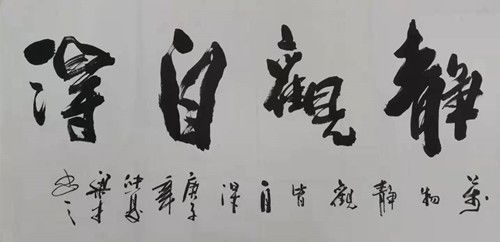 静觀自得
萬物静觀皆自得 庚子年仲夏 书之